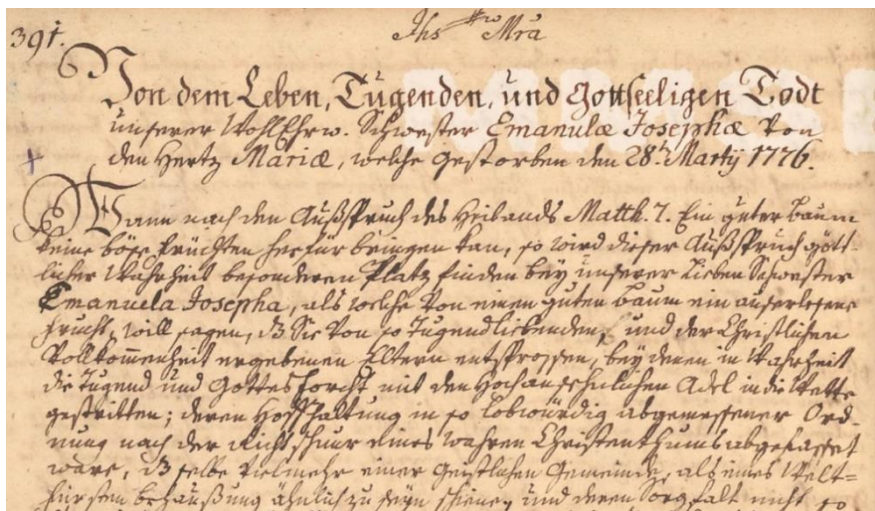 391.
Jhs Mra
Von dem Leben, Tugenden, und Gottseeligen Todt
unserer WohlEhrw. Schwester Emanulæ Josephæ von
den Hertz Mariæ, welche gestorben den 28t. Martij 1776.
Wann nach den Außspruch des Heilands Matth. 7. Ein guter baum
keine böse früchten herfür bringen kan, so wird dieser Außspruch gött-
licher Wahrheit besonderen Platz finden bey unserer lieben Schwester
Emanuela Josepha, als welche von einen guten baum ein auserlesene
frucht, will sagen, dz Sie von so Tugendliebenden, und der Christlichen
Vollkommenheit ergebenen Eltern entsprossen, bey denen in Wahrheit
die Tugend und Gottesforcht mit den Hochansehnlichen Adel in die Wette
gestritten; deren Hoffhaltung in so lobwürdig abgemessener Ord-
nung nach der Richtschnur eines wahren Christenthums abgefasset
ware, dz selbe vielmehr einer Geistlichen Gemeinde, als eines Welt-
fürsten behaußung ähnlich zu seyn schiene, und deren Sorgfalt nicht so